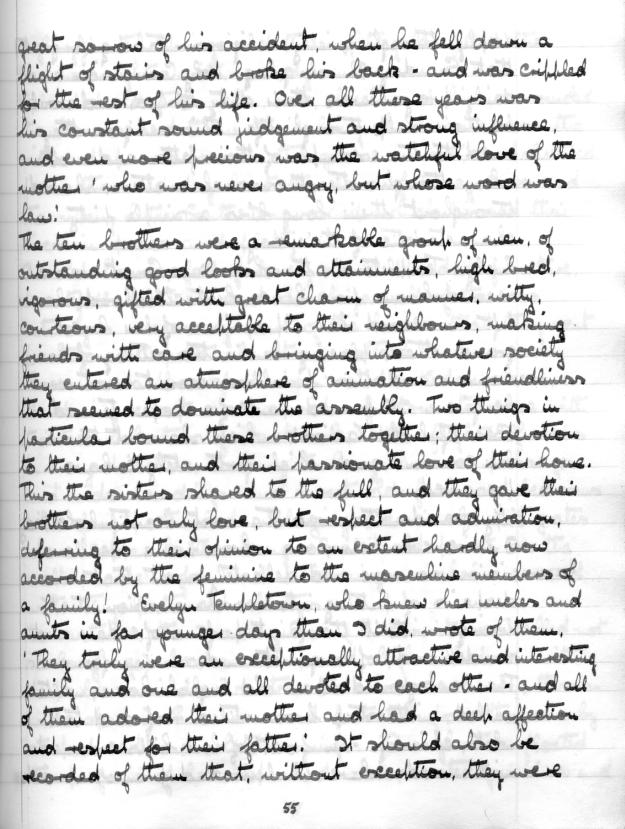 great sorrow of his accident, when he fell down a
flight of stairs and broke his back - and was crippled
for the rest of his life. Over all these years was
his constant sound judgement and strong influence,
and even more precious was the watchful love of the
mother 'who was never angry, but whose word was
law.'
The ten brothers were a remarkable group of men, of
outstanding good looks and attainments, high bred,
vigorous, gifted with great charm of manner, witty,
courteous, very acceptable to their neighbours, making
friends with care and bringing into whatever society
they entered an atmosphere of animation and friendliness
that seemed to dominate the assembly. Two things in
particular bound these brothers together; their devotion
to their mother, and their passionate love of their home.
This the sisters shared to the full, and they gave their
brothers not only love, but respect and admiration,
deferring to their opinion to an extent hardly now
accorded by the feminine to the masculine members of
a family! Evelyn Templetown, who knew her uncles and
aunts in far younger days than I did, wrote of them,
'They truly were an exceptionally attractive and interesting
family and one and all devoted to each other - and all
of them adored their mother and had a deep affection
and respect for their father.' It should also be
recorded of them that, without exception, they were
55